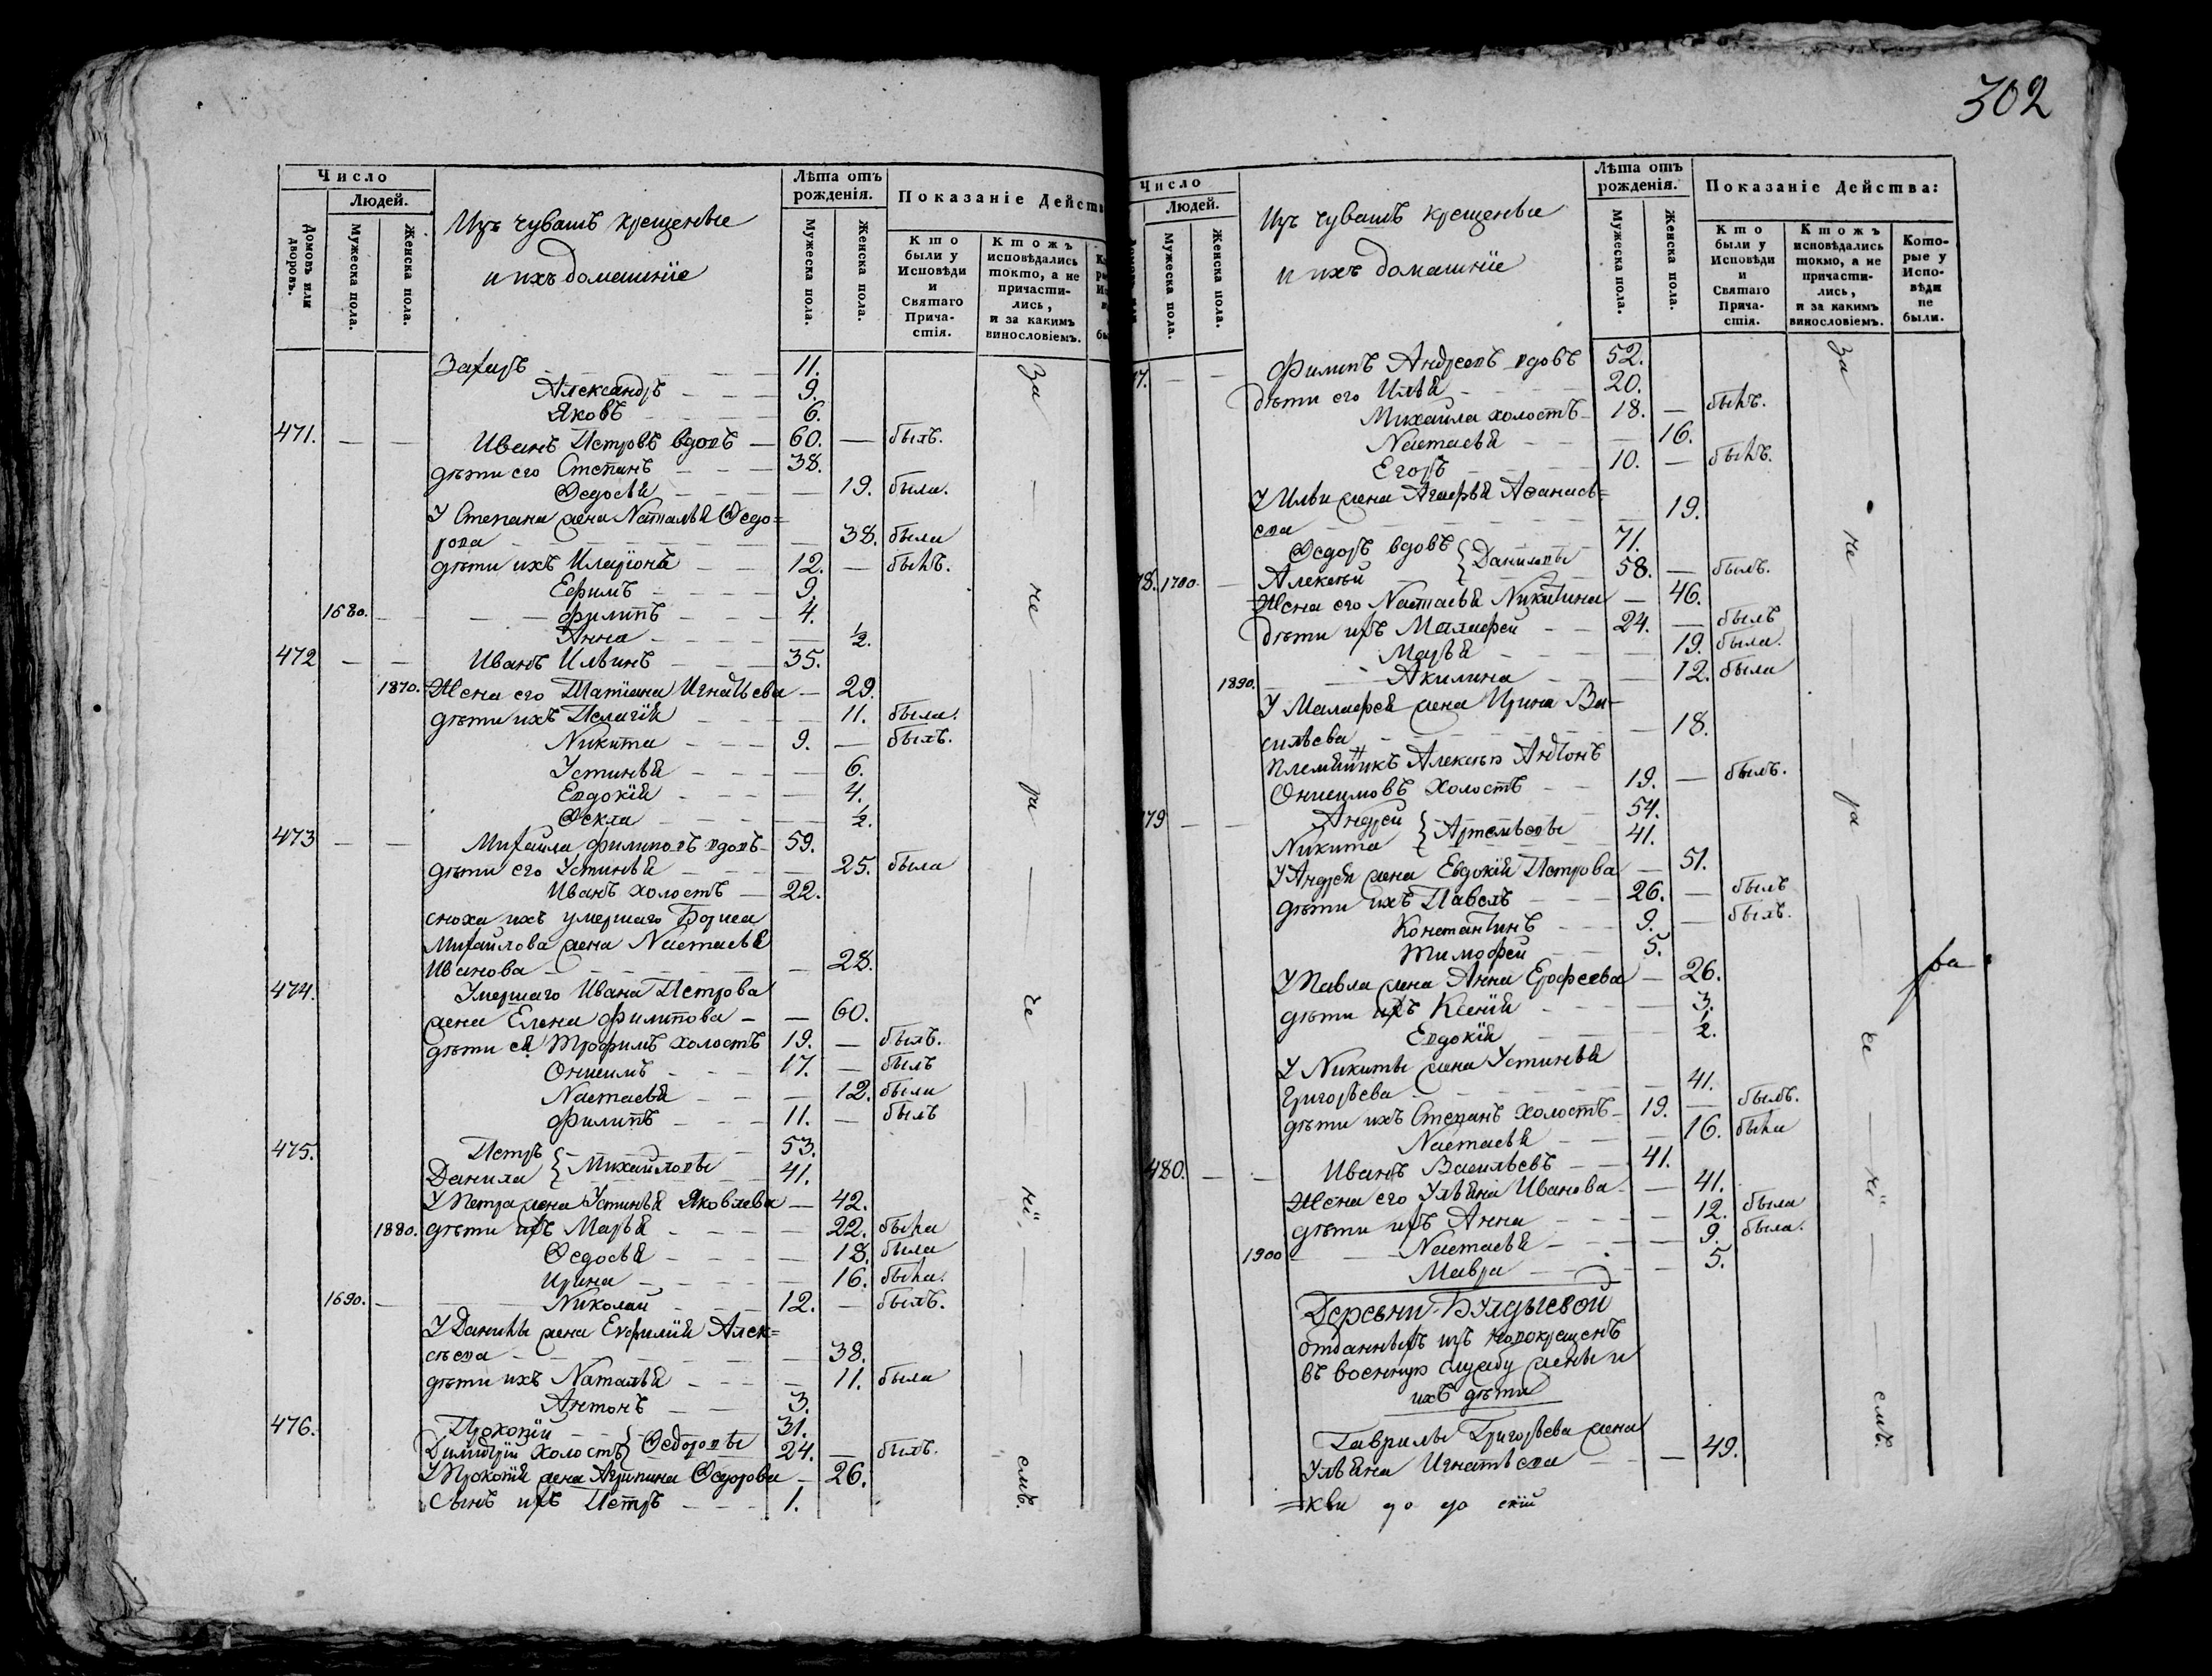 302
Число
Людей.
Домовъ или дворовъ.
Мужеска пола.
Женска пола.
Изъ чувашъ крещеные
и ихъ домашніе
Лѣта отъ рожденія.
Мужеска пола.
Женска пола.
Показаніе Дейст
Кто были у Исповѣди и Святаго Прича- стія.
Ктожъ исповѣдались токмо, а не причасти- лись, и за какимъ винословіемъ.
Захаръ 11.
Александръ 9.
Яковъ 6.
471. Иванъ Петровъ вдовъ 60. былъ.
дѣти его Степанъ 38.
Ѳедосья 19. была.
У Степана жена Наталья Ѳедо=
рова 38. была
дѣти ихъ Иларіонъ 12. былъ.
Ефимъ 9.
1680. Филипъ 4.
Анна ½.
472 Иванъ Ильинъ 35.
1870. Жена его Татіана Игнатьева 29.
дѣти ихъ Пелагія 11. была.
Никита 9. былъ.
Устинья 6.
Евдокія 4.
Ѳекла ½.
473 Михайла Филиповъ вдовъ 59.
дѣти его Устинья 25. была
Иванъ холостъ 22.
сноха ихъ умершаго Бориса
Михайлова жена Настасья
Иванова 28.
474. Умершаго Ивана Петрова
жена Елена Филипова 60.
дѣти ея Трофимъ холостъ 19. былъ.
Онисимъ 17. былъ
Настасья 12. была
Филипъ 11. былъ
475. Петръ 53.
Данила } Михайловы 41.
У Петра жена Устинья Яковлева 42.
1880. дѣти ихъ Марья 22. была
Ѳедосья 18. была
Ирина 16. была.
1690. Николай 12. былъ.
У Данилы жена Евфимія Алек=
сѣева 38.
дѣти ихъ Наталья 11. была
Антонъ 3.
476. Прокопій 31.
Димитрій холостъ } Ѳедоровы 24. былъ.
У Прокопія жена Агрипина Ѳедорова 26.
Сынъ ихъ Петръ 1.
За не ра че ні емъ.
Число
Людей.
Мужеска пола.
Женска пола.
Изъ чувашъ крещеные
и ихъ домашніе
Лѣта отъ рожденія.
Мужеска пола.
Женска пола.
Показаніе Действа:
Кто были у Исповѣди и Святаго Прича- стія.
Ктожъ исповѣдались токмо, а не причасти- лись, и за какимъ винословіемъ.
Кото- рые у Испо- вѣди не были.
7. Филипъ Андреевъ вдовъ 52.
дѣти его Илья 20.
Михайла холостъ 18. былъ.
Настасья 16.
Егоръ 10. былъ.
У Ильи жена Агафья Аѳанась=
ева 19.
Ѳедоръ вдовъ 71.
78. 1700. Алексѣй } Даниловы 58. былъ.
Жена его Настасья Никитина 46.
дѣти ихъ Малафей 24. былъ
Марья 19. была.
1890. Акилина 12. была
У Малафея жена Ирина Ва-
сильева 18.
Племянникъ Алексѣя Антонъ
Онисимовъ холостъ 19. былъ.
79 Андрей 54.
Никита } Артемьевы 41.
У Андрея жена Евдокія Петрова 51.
дѣти ихъ Павелъ 26. былъ
Константинъ 9. былъ.
Тимофей 5.
У Павла жена Анна Ерофеева 26.
дѣти ихъ Ксенія 3.
Евдокія ½.
У Никиты жена Устинья
Григорьева 41.
дѣти ихъ Степанъ холостъ 19. былъ.
Настасья 16. была
480. Иванъ Васильевъ 41.
Жена его Ульяна Иванова 41.
дѣти ихъ Анна 12. была
1900 Настасья 9. была.
Мавра 5.
Деревни Булдыевой
отданныхъ изъ новокрещенъ
въ военную службу жены и
ихъ дѣти
Гаврилы Григорьева жена
Ульяна Игнатьева 49.
За не ра че ні емъ.
=кви
скій